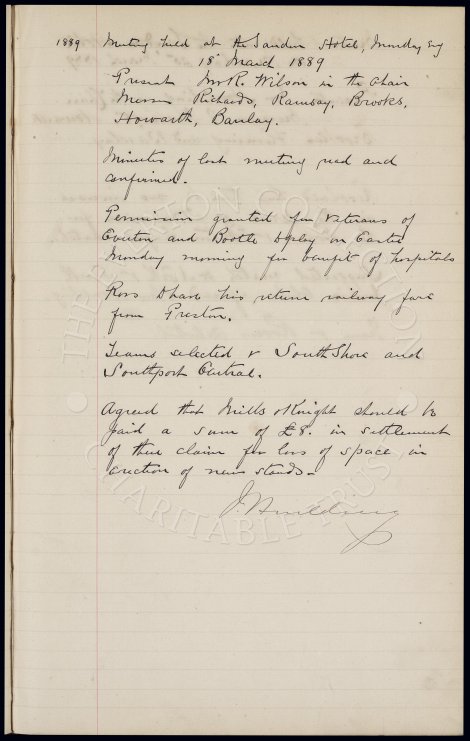 1889 Meeting held at the Sandon Hotel, Monday Evg
18 March 1889
Present Mr R. Wilson in the Chair
Messrs Richards, Ramsay, Brooks,
Howarth, Barclay.
Minutes of last meeting read and
confirmed.
Permission granted for veterans of
Everton and Bootle to play on Easter
Monday morning for benefit of hospitals
Ross to have his return railway fare
from Preston.
Teams selected v South Shore and
Southport Central.
Agreed that Mills & Knight should be
paid a sum of £8. in settlement
of their claim for loss of space in
erection of new stands.
J. Houlding
THE EVERTON COLLECTION
CHARITABLE TRUST